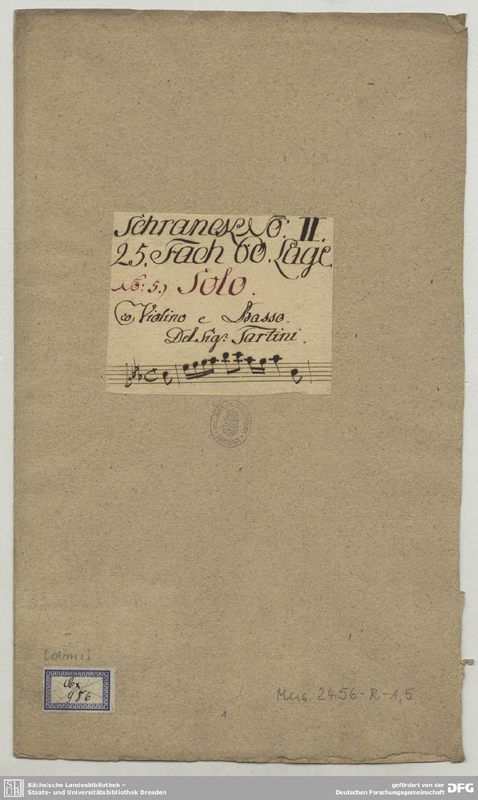 Schranck No: II.
25. Fach 60. Lage
No: 5.) Solo.
co Violino e Basso.
Del Sigr: Tartini.
[olim:]
Cx
986
Mus 2456-R-1,5
1
SLUB
Sächsische Landesbibliothek –
Staats- und Universitätsbibliothek Dresden
gefördert von der
Deutschen Forschungsgemeinschaft
DFG